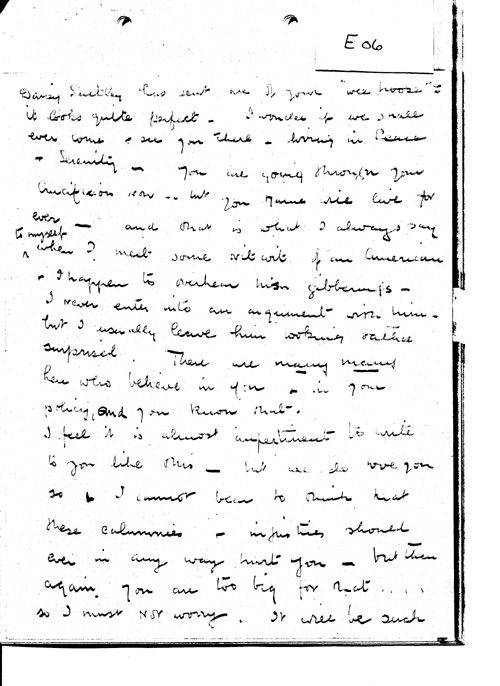 E 06
Daisy Suckley has sent me of your "wee hoose" &
it looks quite perfect - I wonder if we shall
ever come & see you there - living in Peace
& Serenity - you are going through your
Crucifixion now - but your name will live for
ever - and that is what I always say
to myself when I meet some nitwit of an American
& I happen to overhear his gibberings -
I never enter into an argument with him -
but I usually leave him looking rather
surprised. There are many many
here who believe in you & in your
policy, and you know that.
I feel it is almost impertinent to write
to you like this - but we do love you
so & I cannot bear to think that
these calumnies & injustices should
ever in any way hurt you - but then
again, you are too big for that ....
so I must not worry. It will be such